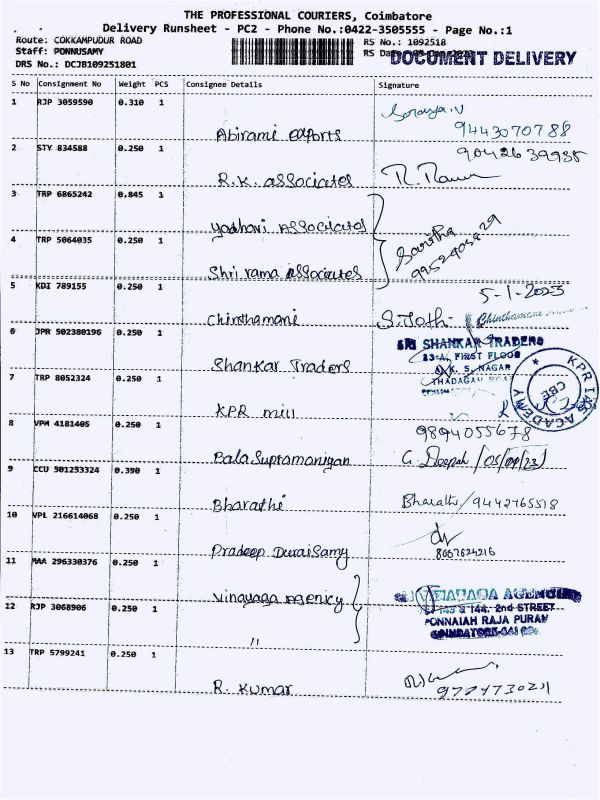 THE PROFESSIONAL COURIERS, Coimbatore
Delivery Runsheet - PC2 - Phone No.:0422-3505555 - Page No.:1
Route: COKKAMPUDUR ROAD
RS No.: 1092518
Staff: PONNUSAMY
RS Date
DOCUMENT DELIVERY
DRS No.: DCJB109251801
S No Consignment No Weight PCS Consignee Details Signature
1 RJP 3059590 0.310 1
Abirami exports
9443070788
2 STY 834588 0.250 1
R.K. associates
3 TRP 6865242 0.845 1
Associates
4 TRP 5064035 0.250 1
Savitha
Shri rama associates
5 KDI 789155 0.250 1
5-1-2023
Chinthamani
S. Jothi
Chinthamani
6 JPR 502380196 0.250 1
SRI SHANKAR TRADERS
23-A, FIRST FLOOR
K. S. NAGAR
THADAGAM ROAD
Shankar Traders
7 TRP 8052324 0.250 1
KPR IAS ACADEMY
CBE
KPR mill
8 VPM 4181405 0.250 1
9894055678
Bala Supramaniyan
9 CCU 501253324 0.390 1
Bharathi
Bharathi/9442765518
10 VPL 216614068 0.250 1
Pradeep Duraisamy
8057624216
11 MAA 296330376 0.250 1
Vinayaga Agency
AGENCIES
12 RJP 3068906 0.250 1
144, 2nd STREET
PONNAIAH RAJA PURAM
"
13 TRP 5799241 0.250 1
R. Kumar